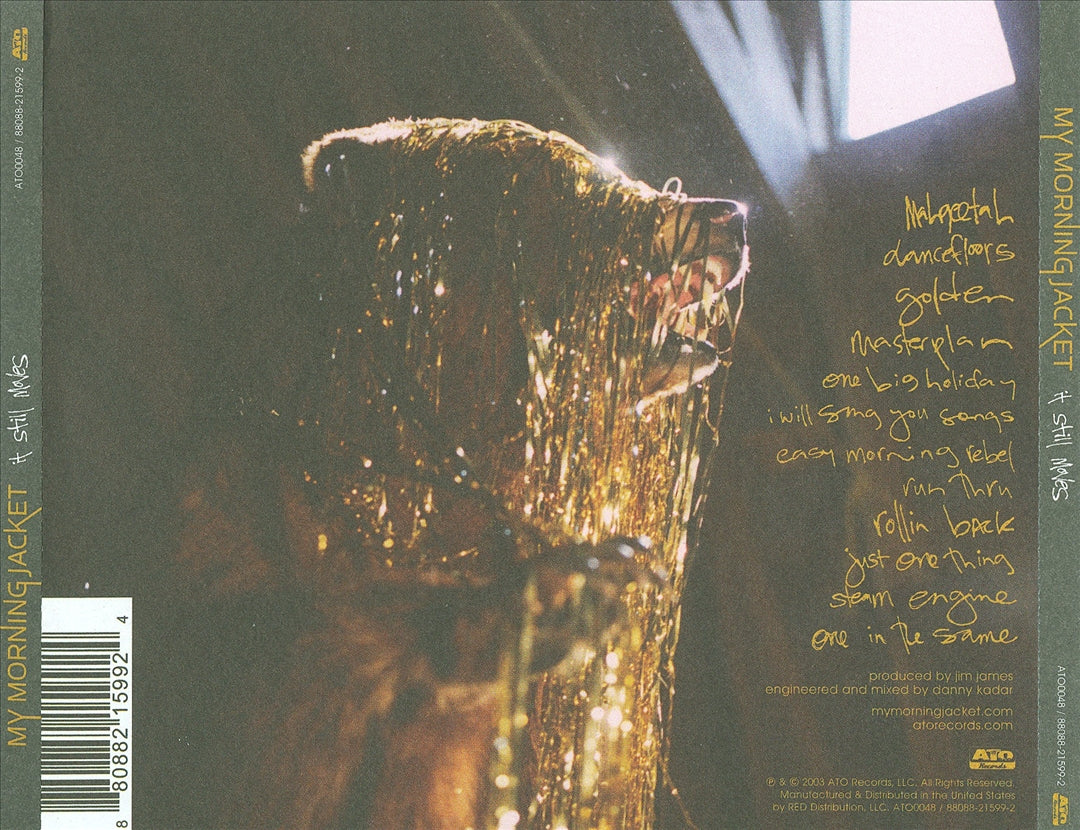 ATO
Records
ATO0048 / 88088-21599-2
it still moves
MY MORNING JACKET
8 80882 15992 4
Mahgeetah
dancefloors
golden
masterplan
one big holiday
i will sing you songs
easy morning rebel
run thru
rollin back
just one thing
steam engine
one in the same
produced by jim james
engineered and mixed by danny kadar
mymorningjacket.com
atorecords.com
ATO
Records
℗ & © 2003 ATO Records, LLC. All Rights Reserved.
Manufactured & Distributed in the United States
by RED Distribution, LLC. ATO0048 / 88088-21599-2
MY MORNING JACKET
it still moves
ATO0048 / 88088-21599-2
ATO
Records